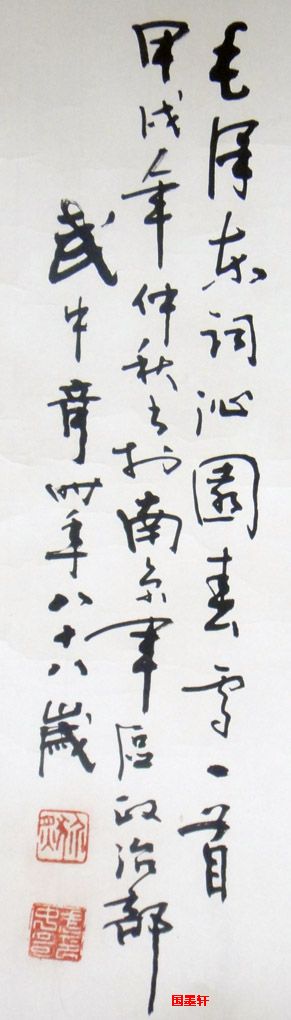 毛泽东词沁園春雪一首
甲戌年仲秋书於南京军區政治部
武中奇时年八十八歲
国墨轩